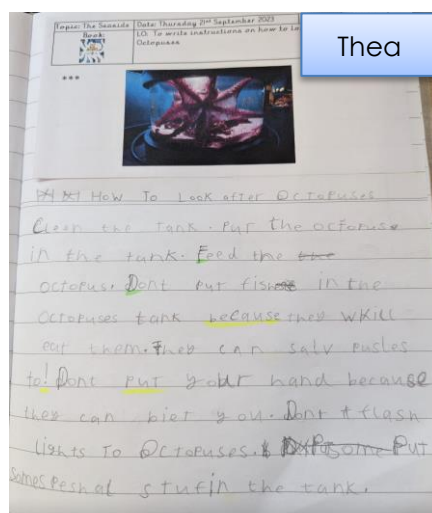 Thea
Topic: The Seaside
Date: Thursday 21st September 2023
Book:
LO: To write instructions on how to lo
Octopuses
***
How To Look after Octopuses
Cleen the tank. Put the octopuse
in the tank. Feed the
octopus. Dont put fish in the
Octopuses tank because they wkill
eat them. They can salv pusles
to! Dont put your hand because
they can bier you. Dont flash
Lights To Octopuses. Put
some speshal stuf in the tank.